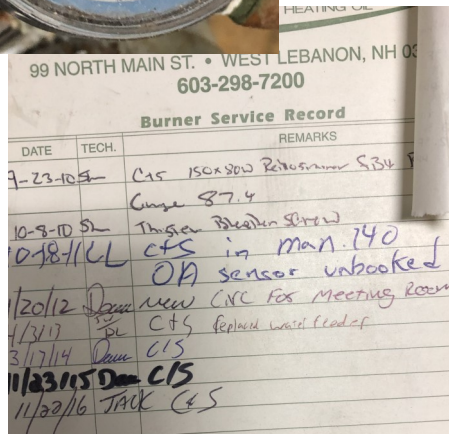 HEATING OIL
99 NORTH MAIN ST. • WEST LEBANON, NH 03
603-298-7200
Burner Service Record
DATE TECH. REMARKS
9-23-10 SL C+S 150x80W
87.4
10-8-10 SL Screw
10-18-11 LL C+S in man. 140
OA sensor unhooked
1/20/12 Dave New CNC For Meeting Room
1/3/13 DL C+S Replaced water feeder
3/17/14 Dave C/S
11/23/15 Dave C/S
11/22/16 JACK C+S